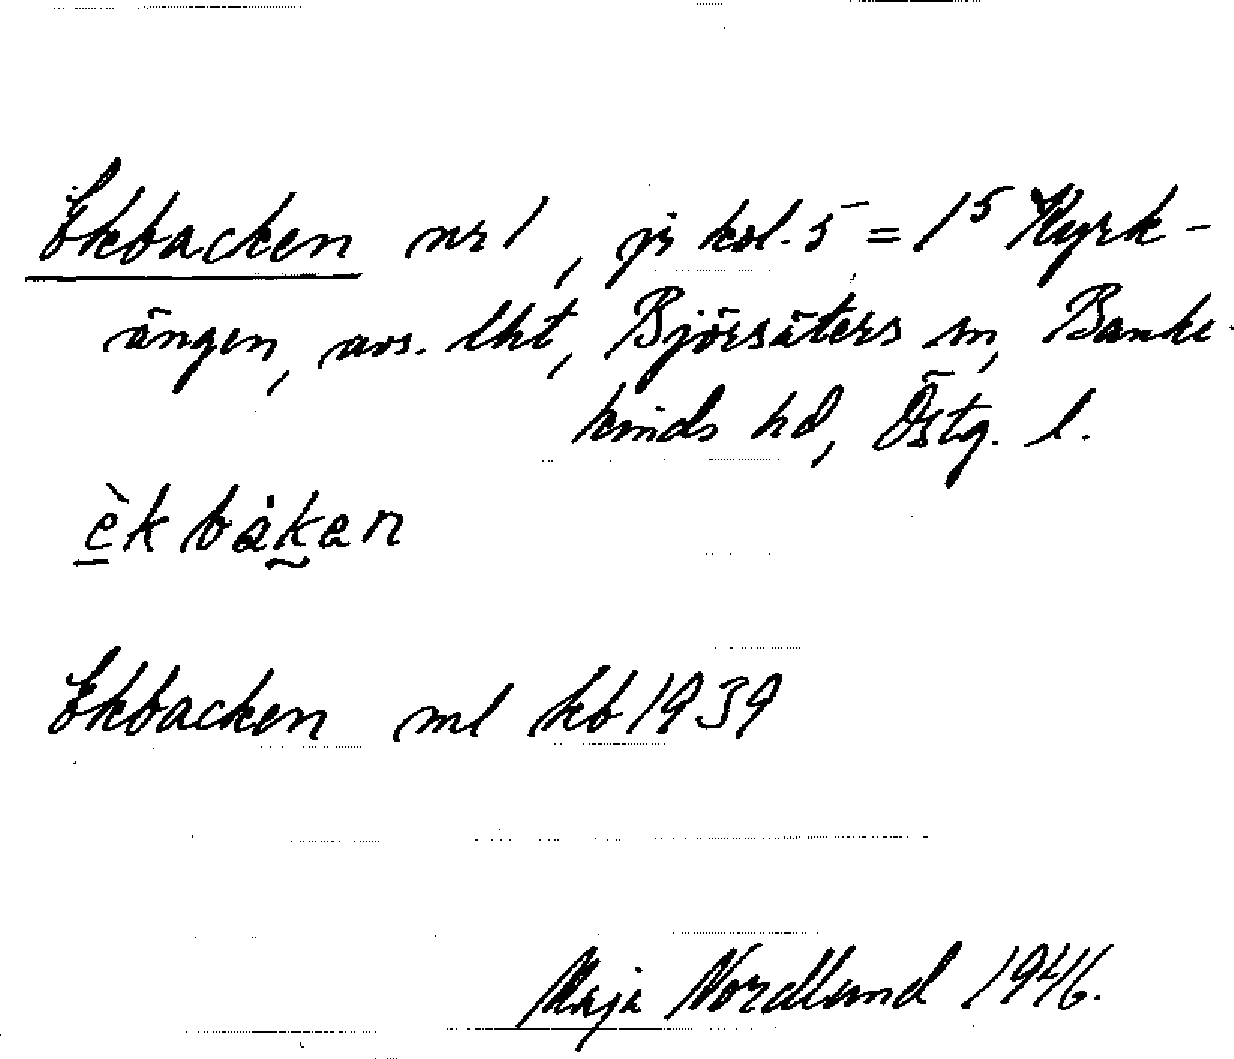 Ekbacken nr 1, jr kol. 5 = 1⁵ Kyrk-
ängen, avs. lht, Björsäters sn, Banke-
kinds hd, Östg. l.
èkbàkan
Ekbacken ml kb 1939
Maja Nordlund 1946.